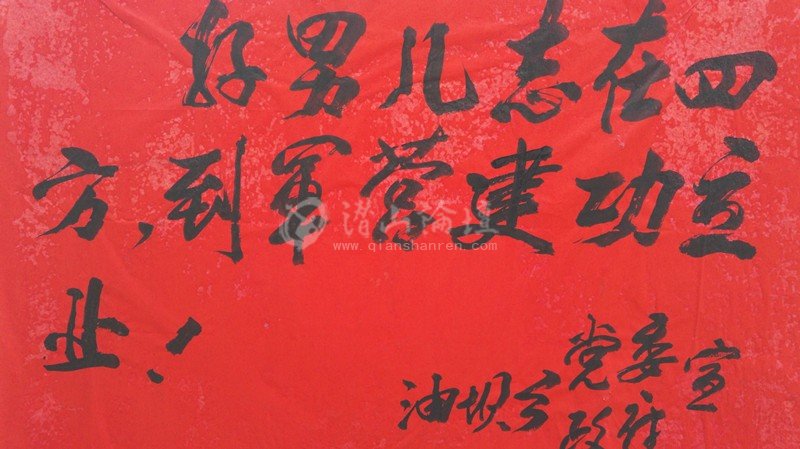 好男儿志在四
方，到军营建功立
业！
油坝乡党委 政府 宣
潜山论坛
www.qianshanren.com